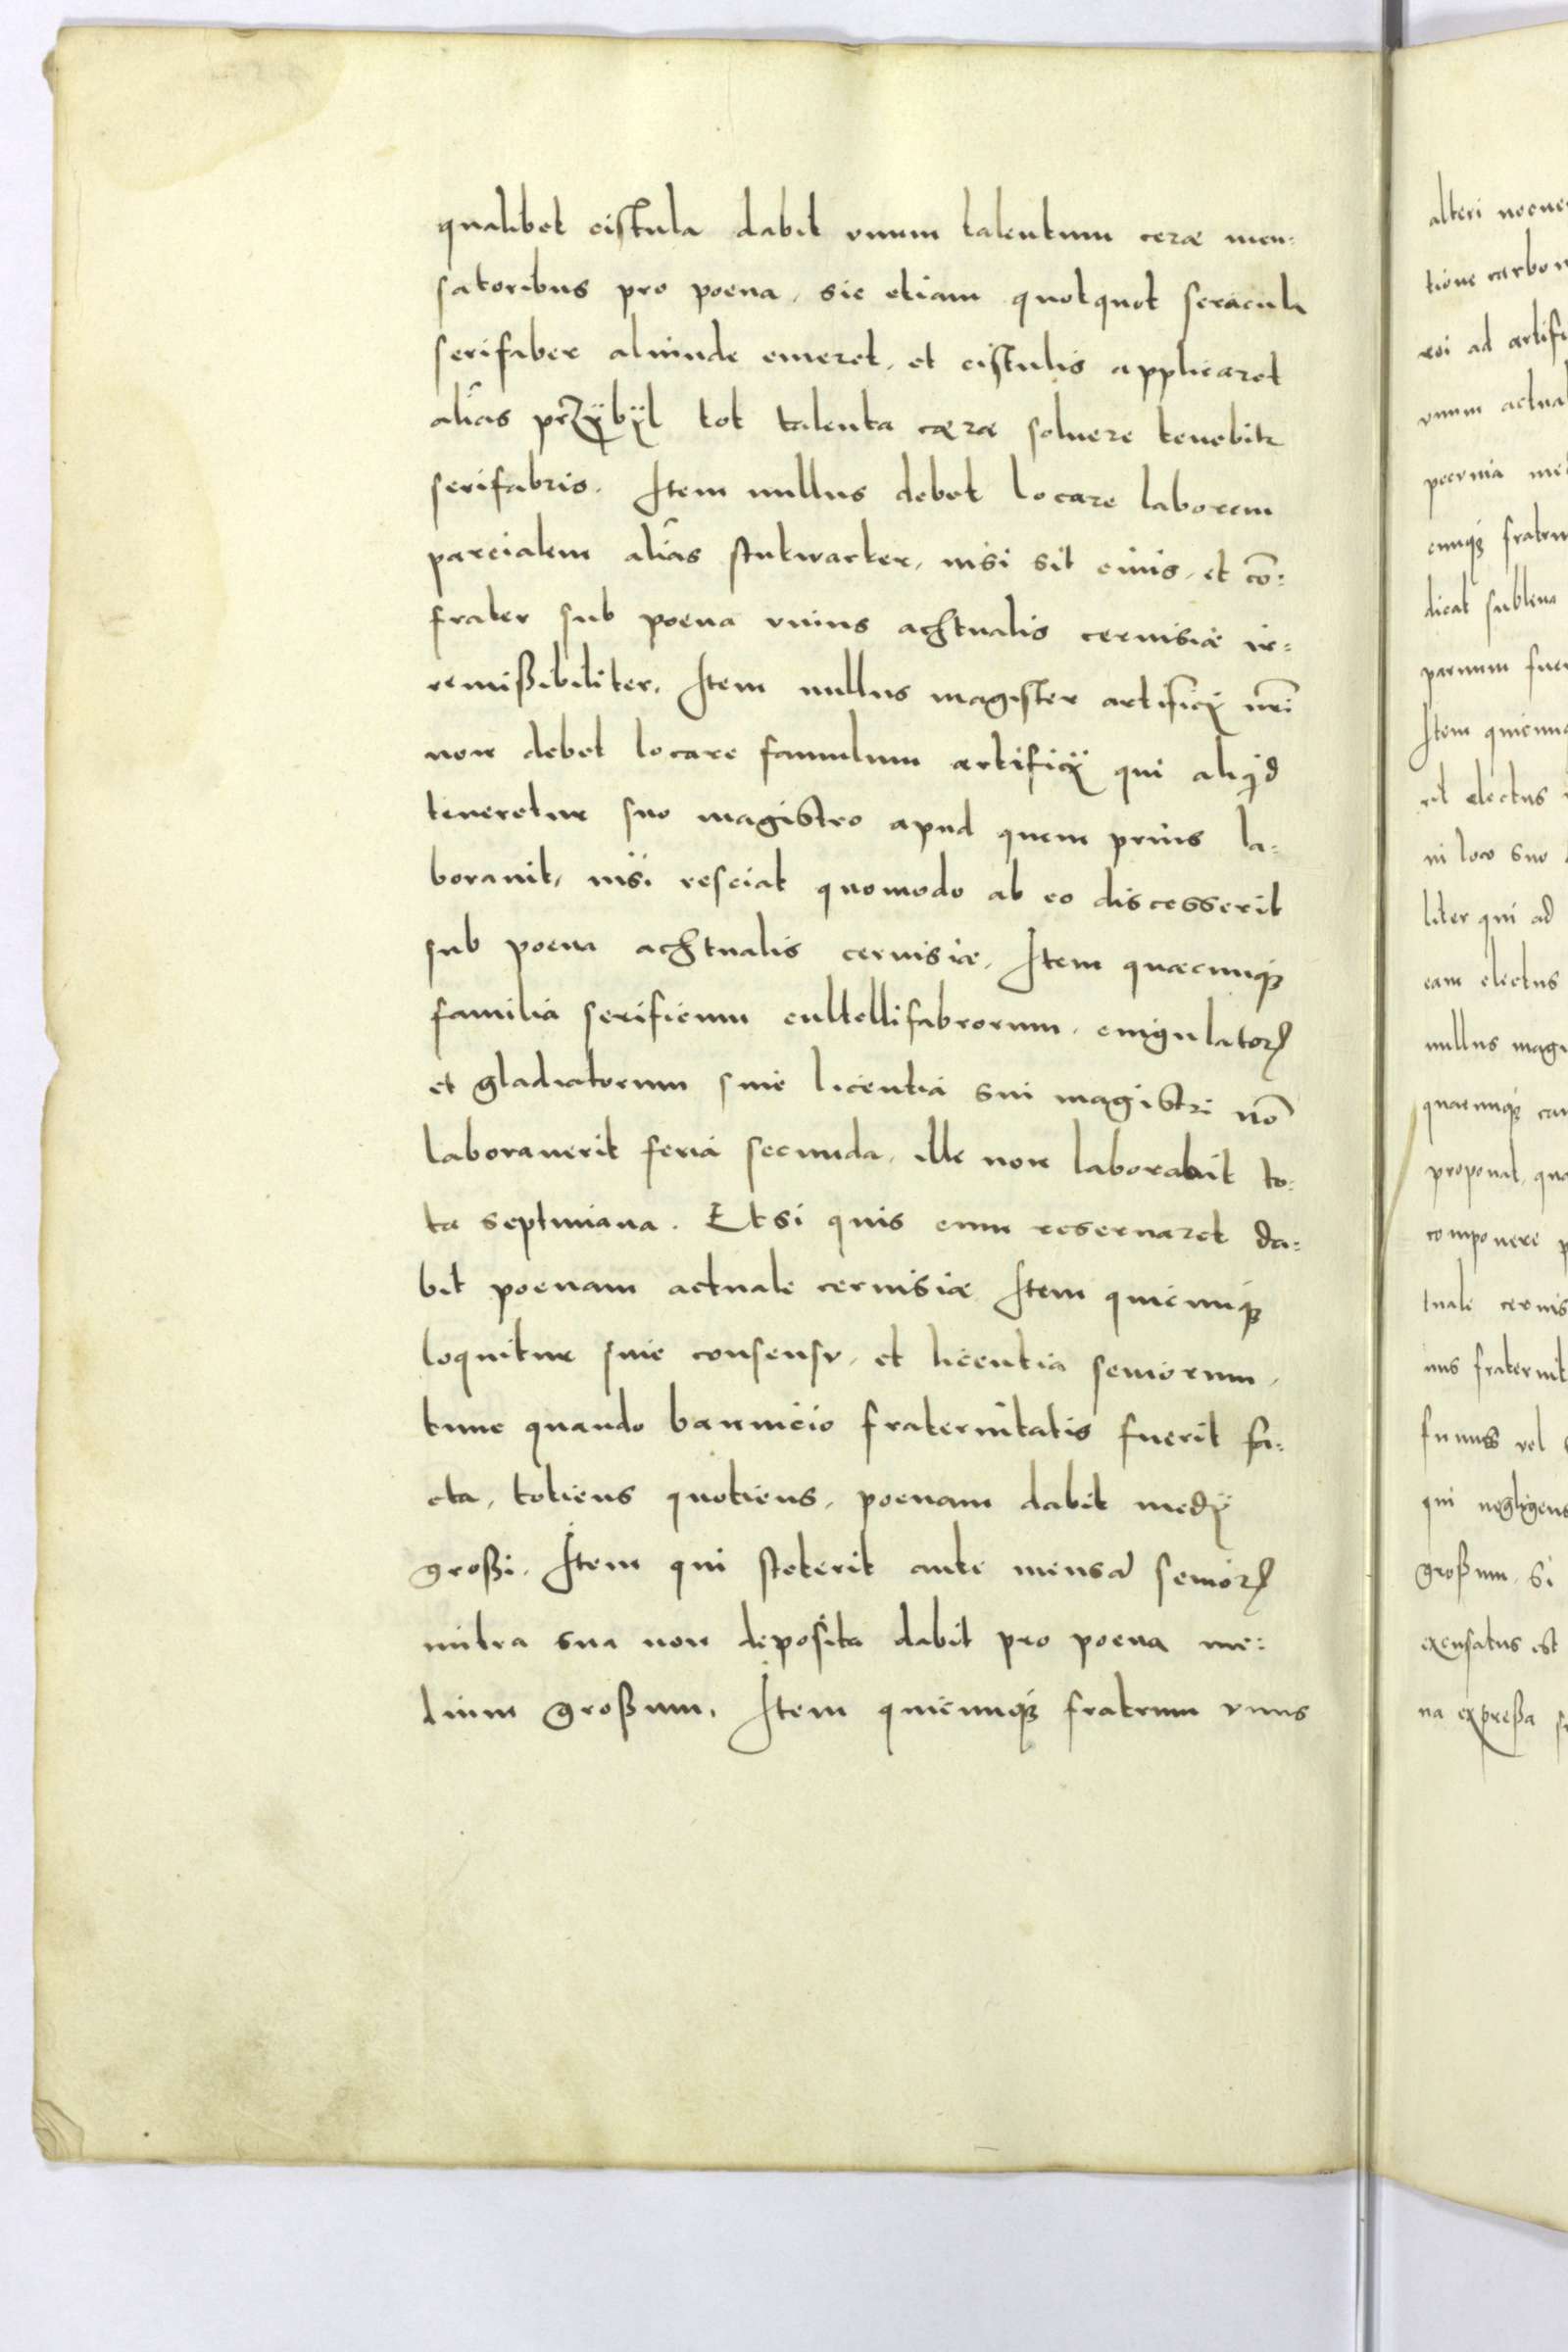 qualibet cistula dabit vnum talentum ceræ men:
satoribus pro poena, sic etiam quotquot seracula
serifaber aliunde emeret, et cistulis applicaret
alias przÿbÿl tot talenta cæræ soluere tenebitr
serifabris. Item nullus debet locare laborem
parcialem alias stukwarker, nisi sit ciuis, et cō:
frater sub poena vnius achtualis ceruisiæ ir:
remißibiliter. Item nullus magister artificÿ nr̄i
non debet locare famulum artificÿ qui aliqd
teneretur suo magistro apud quem prius la:
borauit, nisi resciat quomodo ab eo discesserit
sub poena achtualis ceruisiæ. Item quæcunqꝫ
familia serificum cultellifabrorum, cingulatorꝝ
et gladiatorum sine licentia sui magistri nō
laborauerit feria secunda, ille non laborabit to:
ta septimana. Et si quis eum reseruaret da:
bit poenam actuale ceruisiæ Item quicunqꝫ
loquitur sine consensu, et licentia seniorum,
tunc quando bannicio fraternitatis fuerit fa:
cta, totiens quotiens, poenam dabit medÿ
großi. Item qui steterit ante mensā seniorꝝ
mitra sua non deposita dabit pro poena me:
dium großum. Item quicunqꝫ fratrum vnus
alteri
tione
roi ad
vnum
pecunia
cunqꝫ
dicat
paruum
Item
rit electus
in loco suo
liter qui ad
eam electus
nullus
quæcunqꝫ
proponat,
componere
tuale
nus
funus vel
qui negligens
großum, si
excusatus est
na expreßa